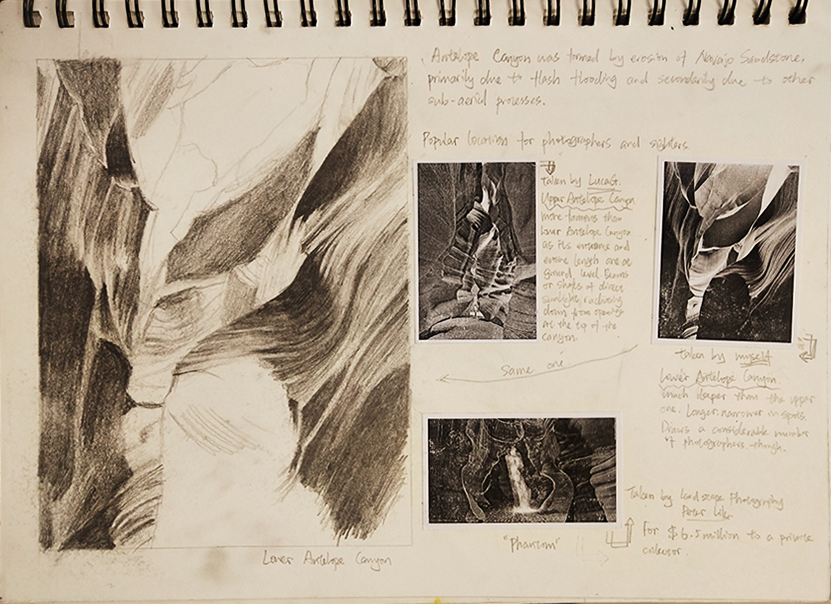 Antelope Canyon was formed by erosion of Navajo Sandstone,
primarily due to flash flooding and secondarily due to other
sub-aerial processes.
Popular location for photographers and sighters.
Taken by LucaG.
Upper Antelope Canyon
more famous than
lower Antelope Canyon
as its entrance and
entire length are at
ground level. Beams
or shafts of direct
sunlight radiating
down from openings
at the top of the
canyon.
taken by myself
Lower Antelope Canyon.
much deeper than the upper
one. Longer, narrower in spots.
Draws a considerable number
of photographers though.
same one
Taken by landscape Photography
Peter Lik
For $6.5 million to a private
collector.
"Phantom"
Lower Antelope Canyon